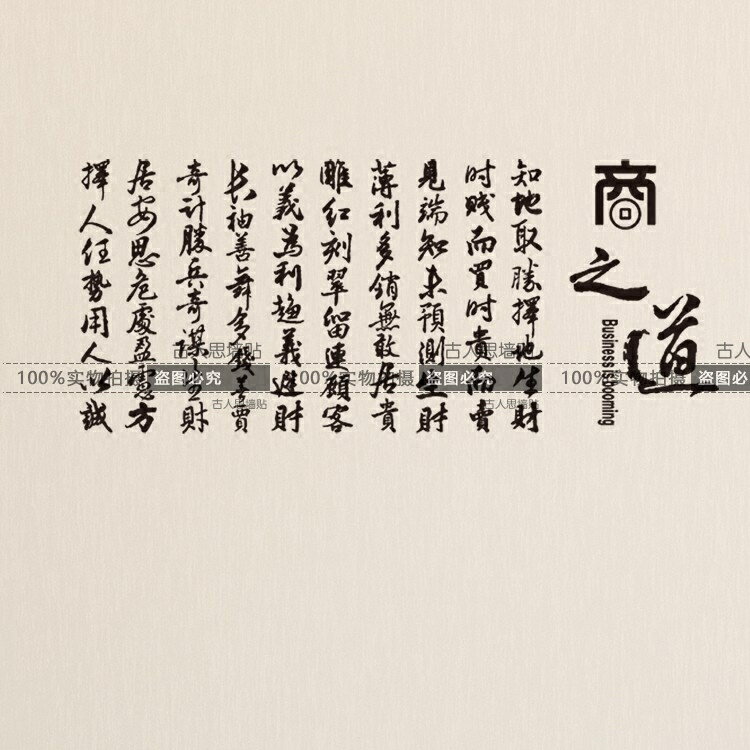 商之道
Business is booming
知地取勝擇地生财
时贱而買时貴而賣
見端知未預測生财
薄利多銷無敢居貴
雕红刻翠留連顧客
以義為利趋義避财
长袖善舞多錢善賈
奇计勝兵奇謀生财
居安思危處盈慮方
擇人任势用人以誠
古人思墙贴
古人思墙贴
古人思
100%实物拍摄 盗图必究
100%实物拍摄 盗图必究
100%实物拍摄 盗图必
古人思墙贴
古人思墙贴